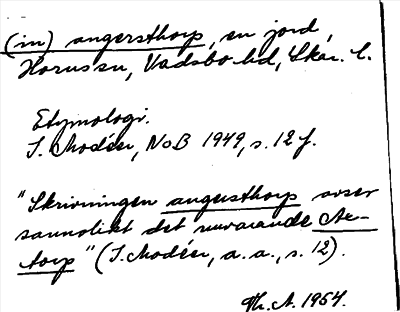 (in) angersthorp, en jord,
Hornssn, Vadsbo hd, Skar. l.
Etymologi.
I. Modéer, NoB 1949, s. 12 f.
"Skrivningen angersthorp avser
sannolikt det nuvarande Ak-
torp" (I. Modéer, a. a., s. 12).
Th. A. 1964.